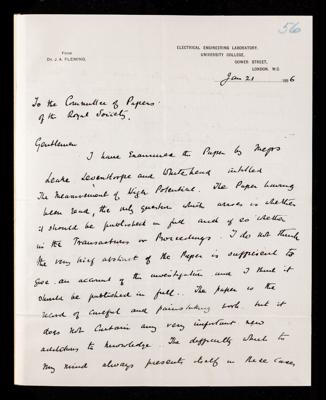 56
ELECTRICAL ENGINEERING LABORATORY,
UNIVERSITY COLLEGE,
GOWER STREET,
LONDON. W.C.
FROM
DR. J. A. FLEMING.
Jan 21
To the Committee of Papers
of the Royal Society.
Gentlemen
I have Examined the Paper by Messrs
Leake Leventhorpe and Whitehead entitled
The Measurement of High Potential. The Paper having
been read, the only question which arises is whether
it should be published in full and if so whether
in the Transactions or Proceedings. I do not think
the very brief abstract of the Paper is sufficient to
give an account of the investigation and I think it
should be published in full. The paper is the
record of careful and painstaking work but it
does not contain any very important new
additions to knowledge. The difficulty which to
my mind always presents itself in these cases